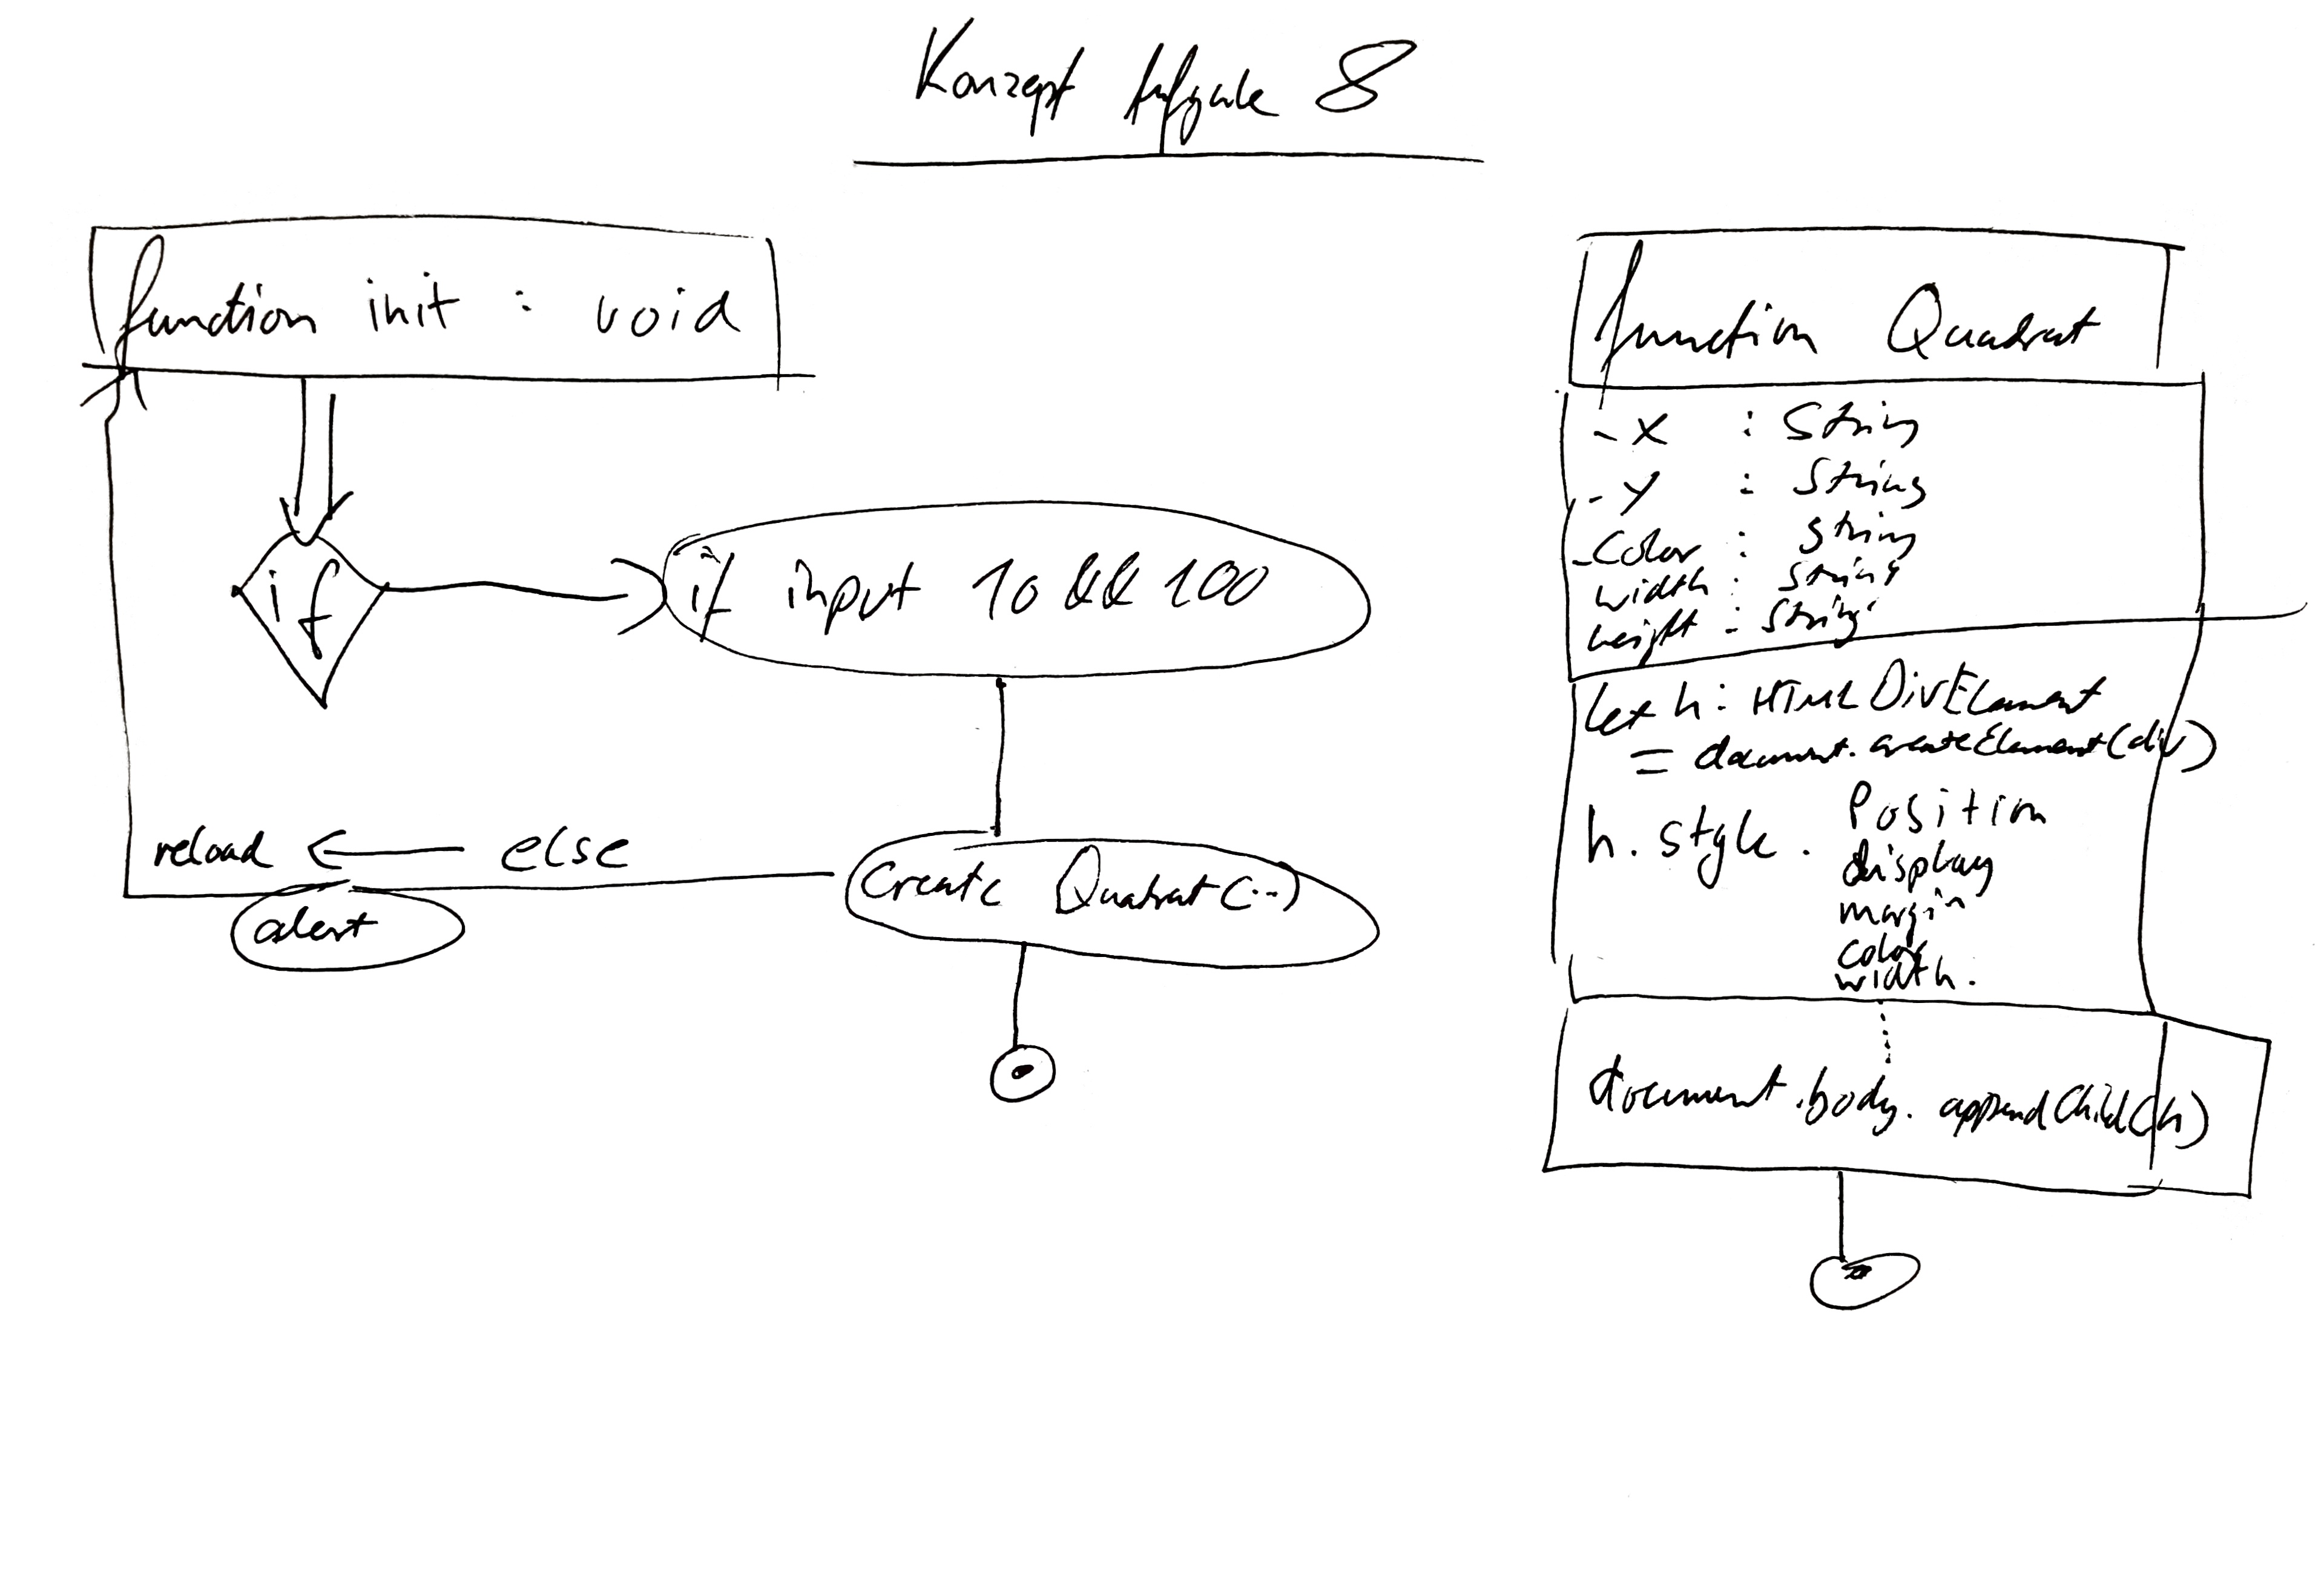 Konzept Aufgabe 8
function init : void
if
if input 10 && 100
reload ← else
alert
Create Quadrat (..)
function Quadrat
- x : String
- y : String
- Color : String
width : String
height : String
let h : HTML DivElement
= document.createElement(div)
h. style. Position
display
margin
color
width.
document.body.appendChild(h)